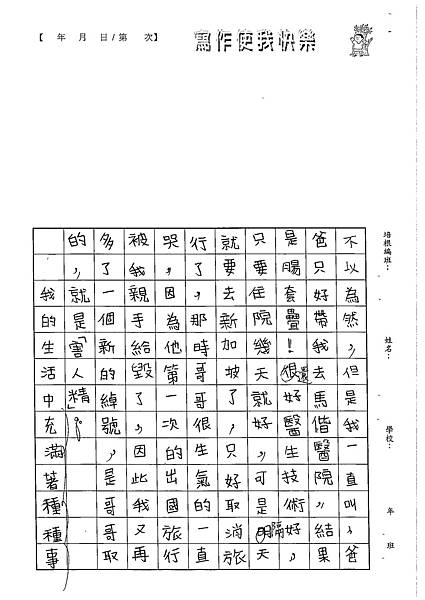 【 年 月 日/第 次】
寫作使我快樂
培根編班：
姓名：
學校：
年 班
不以為然,但是我一直叫爸
爸只好帶我去馬偕醫院,結果
是腸套疊!很還好醫生技術好,
只要住院幾天就好,可是明隔天
就要去新加坡了,只好取消旅
行了,那時哥哥很生氣的一直
哭,因為他第一次的出國旅行
被我親手給毀了,因此我又再
多了一個新的綽號,是哥哥取
的,就是「害人精」。
我的生活中充滿著種種事